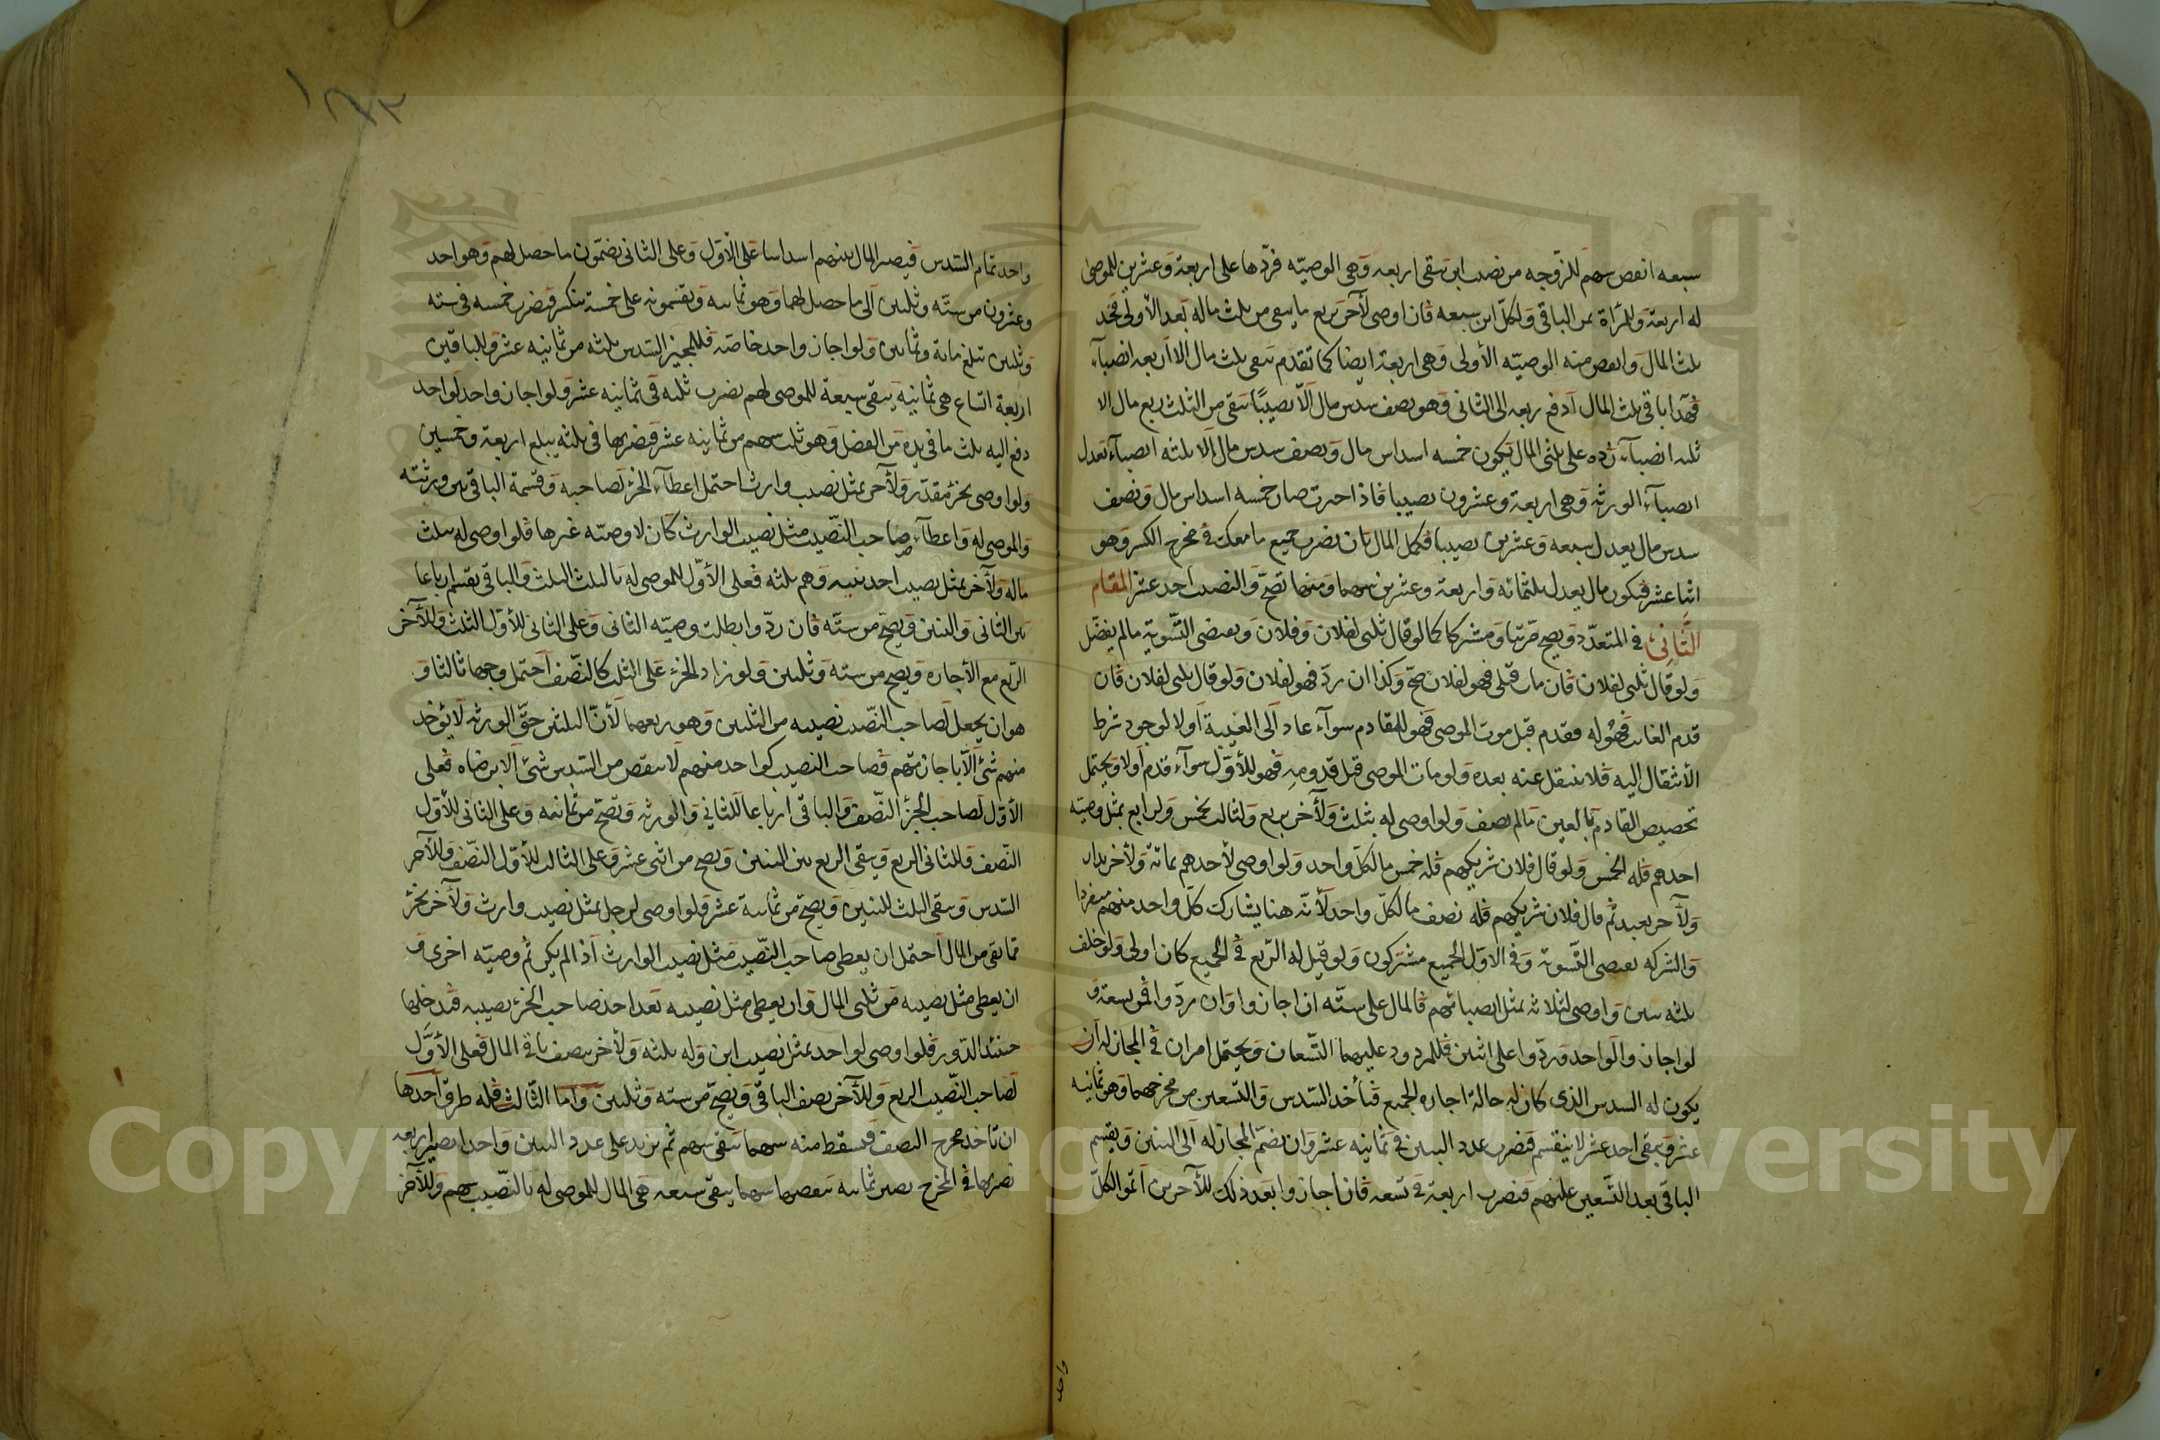 سبعه انقص سهم للزوجه من نصيب ابن يبقى اربعه وهى الوصيّه فزدها على اربعة وعشرين للموصى
له اربعة وللمرأة ثمن الباقى ولكل ابن سبعه فان اوصى لآخر بربع ما يبقى من ثلث ماله بعد الأولى فخد
ثلث المال وانقص منه الوصيّه الأولى وهى اربعة ايضا كما تقدم يبقى ثلث مال الا اربعه انصبآء
فهذا باقى ثلث المال ادفع ربعه الى الثانى وهو نصف سدس مال الّا نصيبًا يبقى من الثلث ربع مال الا
ثلثه انصبآء زده على ثلثى المال يكون خمسه اسداس مال ونصف سدس مال الا ثلثه انصبآء تعدل
انصبآء الورثه وهى اربعة وعشرون نصيبا فاذا اجبرت صار خمسه اسداس مال ونصف
سدس مال يعدل سبعه وعشرين نصيبا فكمل المال بان تضرب جميع ما معك فى مخرج الكسر وهو
اثنا عشر فيكون مال يعدل ثلثمائه واربعة وعشرين سهما ومنها تصحّ والنصيب احد عشر المقام
الثانى فى المتعدّد ويصح مرتبا ومشركا كما لو قال ثلثى لفلان وفلان ويقتضى التّسوية مالم يفضّل
ولو قال ثلثى لفلان فان مات قبلى فهو لفلان صحّ وكذا ان ردّ فهو لفلان ولو قال ثلثى لفلان فان
قدم الغائب فهو له فقدم قبل موت الموصى فهو للقادم سوآء عاد الى الغيبة اولا لوجود شرط
الأنتقال اليه فلا ينتقل عنه بعده ولو مات الموصى قبل قدومه فهو للأوّل سوآء قدم اولا ويحتمل
تخصيص القادم بالعين مالم نصف ولو اوصى له بثلث ولآخر بربع ولثالث بخمس ولرابع بمثل وصيّه
احدهم فله الخمس ولو قال فلان شريكهم فله خمس ما لكلّ واحد ولو اوصى لأحدهم بمائة ولأخر بدار
ولآخر بعبد ثم قال فلان شريكهم فله نصف ما لكلّ واحد لأنّه هنا يشارك كلّ واحد منهم منفردا
والشركه تقتضى التّسويه وفى الاوّل الجميع مشتركون ولو قيل له الرّبع فى الجميع كان اولى ولو خلف
ثلثه بنين واوصى لثلاثه بمثل انصبائهم فالمال على ستّه ان اجازوا وان ردّوا فمن تسعة و
لو اجازوا لواحد وردّوا على اثنين فللمردود عليهما التّسعان ويحتمل امران فى المجاز له ان
يكون له السدس الذى كان له حالة اجازه الجميع فتأخذ السّدس والتّسعين من مخرجهما وهو ثمانيه
عشر ويبقى احد عشر لا ينقسم فتضرب عدد البنين فى ثمانيه عشر وان يضمّ المجاز له الى البنين ويقسم
الباقى بعد التّسعين عليهم فتضرب اربعة فى تسعه فان اجازوا بعد ذلك للآخرين اتمّوا لكلّ
واحد
واحد تمام السّدس فيصير المال بينهم اسداسا على الأوّل وعلى الثانى يضمّون ما حصل لهم وهو احد
وعشرون من ستّه وثلثين الى ما حصل لهما وهو ثمانيه ويقتسمونه على خمسة تنكسر فتضرب خمسه فى سته
وثلثين تبلغ مائة وثمانين ولو اجاز واحد خاصّه فللمجيز السّدس ثلثه من ثمانيه عشر وللباقين
اربعة اتساع هى ثمانيه يبقى سبعة للموصى لهم تضرب ثلثه فى ثمانيه عشر ولو اجاز واحد لواحد
دفع اليه ثلث ما فى يده من الفضل وهو ثلث سهم من ثمانيه عشر فتضربها فى ثلثه يبلغ اربعة وخمسين
ولو اوصى بجزء مقدّر ولآخر بمثل نصيب وارث احتمل اعطآء الجزء لصاحبه وقسمة الباقى بين ورثته
والموصى له واعطآء صاحب النّصيب مثل نصيب الوارث كان لا وصيّه غيرها فلو اوصى له بثلث
ماله ولآخر بمثل نصيب احد بنيه وهم ثلثه فعلى الأوّل للموصى له بالثلث الثلث والباقى يقسم ارباعا
بين الثانى والبنين ويصحّ من ستّه فان ردّوا بطلت وصيّه الثانى وعلى الثانى للأوّل الثلث وللآخر
الربع مع الأجازه ويصح من سته وثلثين ولو زاد الجزء على الثلث كالنّصف احتمل وجها ثالثا و
هو ان يجعل لصاحب النّصيب نصيبه من الثلثين وهو ربعهما لأنّ الثلثين حقّ الورثه لا يؤخذ
منهم شئ الّا باجازتهم فصاحب النصيب كواحد منهم لا ينقص من السّدس شئ الا برضاه فعلى
الأوّل لصاحب الجزء النّصف والباقى ارباعا للثانى والورثه وتصحّ من ثمانيه وعلى الثانى للأوّل
النّصف وللثانى الربع ويبقى الربع بين البنين ويصح من اثنى عشر وعلى الثالث للأوّل النّصف وللآخر
السّدس ويبقى الثلث للبنين ويصحّ من ثمانيه عشر ولو اوصى لرجل بمثل نصيب وارث ولآخر بجزء
مما بقى من المال احتمل ان يعطى صاحب النّصيب مثل نصيب الوارث اذا لم يكن ثم وصيّه اخرى و
ان يعطى مثل نصيبه من ثلثى المال وان يعطى مثل نصيبه بعد اخذ صاحب الجزء نصيبه فيدخلها
حينئذ الدّور فلو اوصى لواحد بمثل نصيب ابن وله ثلثه ولآخر بنصف باقى المال فعلى الأوّل
لصاحب النّصيب الربع وللآخر نصف الباقى ويصحّ من سته وثلثين واما الثّالث فله طرق احدها
ان تأخذ مخرج النصف فتسقط منه سهما يبقى سهم ثم تزيد على عدد البنين واحدا يصير اربعه
تضربها فى المخرج يصير ثمانيه تنقصها سهما يبقى سبعه هى المال للموصى له بالنّصيب سهم وللآخر